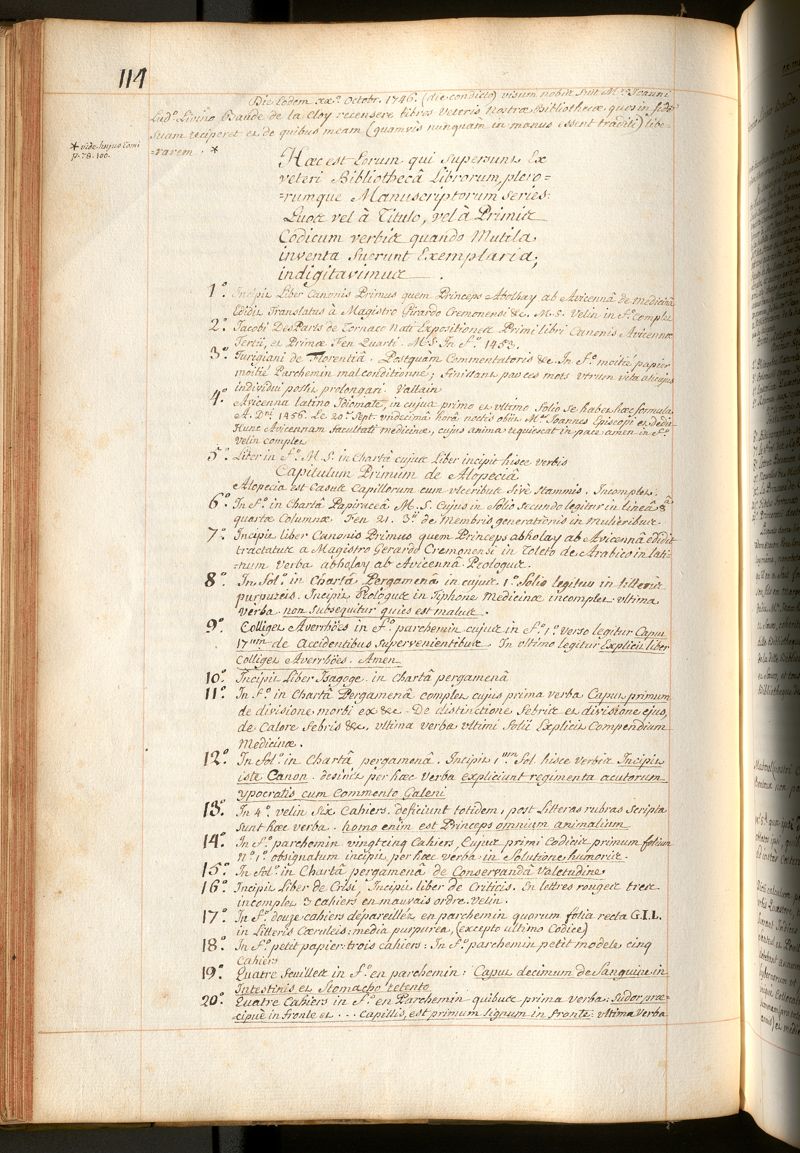 114
Die Eodem xx.ᵃ Octobr. 1746. (die condicto) visum nobis fuit M.ᵒ Joanni
Lud.ᵒ Livino Baude de la Cloy recensere libros Veteris Nostræ Bibliothecæ, quos in fidem
suam reciperet et de quibus meam (quamvis nunquam in manus essent traditi) libe-
=rarem. *
* vide hujus tomi
p. 78. 100.
Hæc est Eorum qui Supersunt Ex
veteri Bibliothecâ Librorum, plero=
=rumque Manuscriptorum series:
Quos vel à Titulo, vel à Primis
Codicum verbis quando Mutila
inventa fuerunt Exemplaria,
indigitavimus.
1.° Incipit Liber Canonis Primus quem Princeps Abolhay ab Avicennâ de medicinâ
Edidit Translatus à Magistro Girardo Cremonensi &c. M.S. Velin in F.° complet
2.° Jacobi DesParts de Tornaco Nati Expositiones Primi libri Canonis Avicennæ
Tertii, et Primæ Fen Quarti. M.S. In F.° 1453.
3.° Turigiani de Florentiâ. Postquam Commentatoris &c. In F.° moitié papier
moitié Parchemin mal conditionné; finissant par ces mots utrum vita alicujus
individui possit prolongari. Vattain
4.° Avicenna latino Idiomate, in cujus primo et ultimo folio se habet hæc formula
A. Dⁿⁱ 1456. Le 20.ᵃ Sept. undecimâ horâ noctis obiit M.ʳ Joannes Episcopi et dedit
Hunc Avicennam facultati medicinæ, cujus anima requiescat in pace amen in F.°
velin complet
5.° Liber in F.° M.S. in Chartâ cujus Liber incipit hisce verbis
Capitulum Primum de Alopeciâ
Alopecia est Casus Capillorum cum ulceribus sive stammis. Incomplet.
6.° In F.° in Chartâ Papiraceâ M.S. Cujus in folio secundo legitur in lineâ 8.â
quartæ Columnæ Fen 21. 3.ᵃ de Membris generationis in Mulieribus.
7.° Incipit liber Canonis Primus quem Princeps abholay ab Avicennâ edidit
tractatus a Magistro Gerardo Cremonensi in Toleto de Arabico in lati-
=num Verba abholay ab Avicenna Prologus.
8.° In Fol.° in Chartâ Pergamenâ in cujus 1.° folio legitur in litteris
purpureis. Incipit Prologus in Tiphone Medicinæ incomplet ultima
verba non subsequitur quies est malus.
9.° Colliget Averrhöes in F.° parchemin cujus in F.° 1.° verso legitur Caput
17ᵘᵐ de Accidentibus Supervenientibus. In ultimo legitur Explicit liber
Colliget Averrhöes. Amen
10.° Incipit Liber Isagoge in chartâ pergamenâ
11.° In F.° in Chartâ Pergamenâ complet cujus prima verba Caput primum
de divisione morbi ex &c. De distinctione febris et divisione ejus,
de Calore febris &c, ultima verba ultimi folii Explicit Compendium
Medicinæ.
12.° In fol.° in Chartâ pergamenâ. Incipit 1.ᵘᵐ fol. hisce verbis Incipit
iste Canon. desinit per hæc Verba expliciunt regimenta acutorum
ypocratis cum Commento Galeni
13.° In 4.° velin Six Cahiers. deficiunt totidem, post Litteras rubras Scripta
sunt hæc verba. homo enim est Princeps omnium animalium
14.° In F.° parchemin vingt cinq Cahiers, Cujus primi Codicis primum folium
N.° 1.° obsignatum incipit per hæc verba in Solutione humoris.
15.° In fol.° in Chartâ pergamenâ de Conservandâ Valetudine
16.° Incipit Liber de Crisi, Incipit liber de Criticis. In lettres rouges tres
incomplet 3 cahiers en mauvais ordre. Velin.
17.° In F.° douze cahiers depareillez en parchemin quorum folia recta G.I.L.
in Litteris Cæruleis: media purpurea, (excepto ultimo Codice)
18.° In F.° petit papier trois cahiers. In F.° parchemin petit modele cinq
Cahiers
19.° Quatre feuillets in F.° en parchemin: Caput decimum de Sanguine in
Intestinis et Stomacho retento
20.° Quatre Cahiers in F.° en Parchemin quibus prima verba: Sudor, præ=
=cipuè in fronte et ... Capillis, est primum signum in fronte: ultima Verba